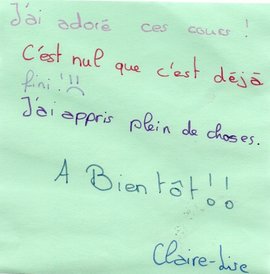 J'ai adoré ces cours !
C'est nul que c'est déjà
fini !!! ☹
J'ai appris plein de choses.
A Bientôt !!
Claire-Lise